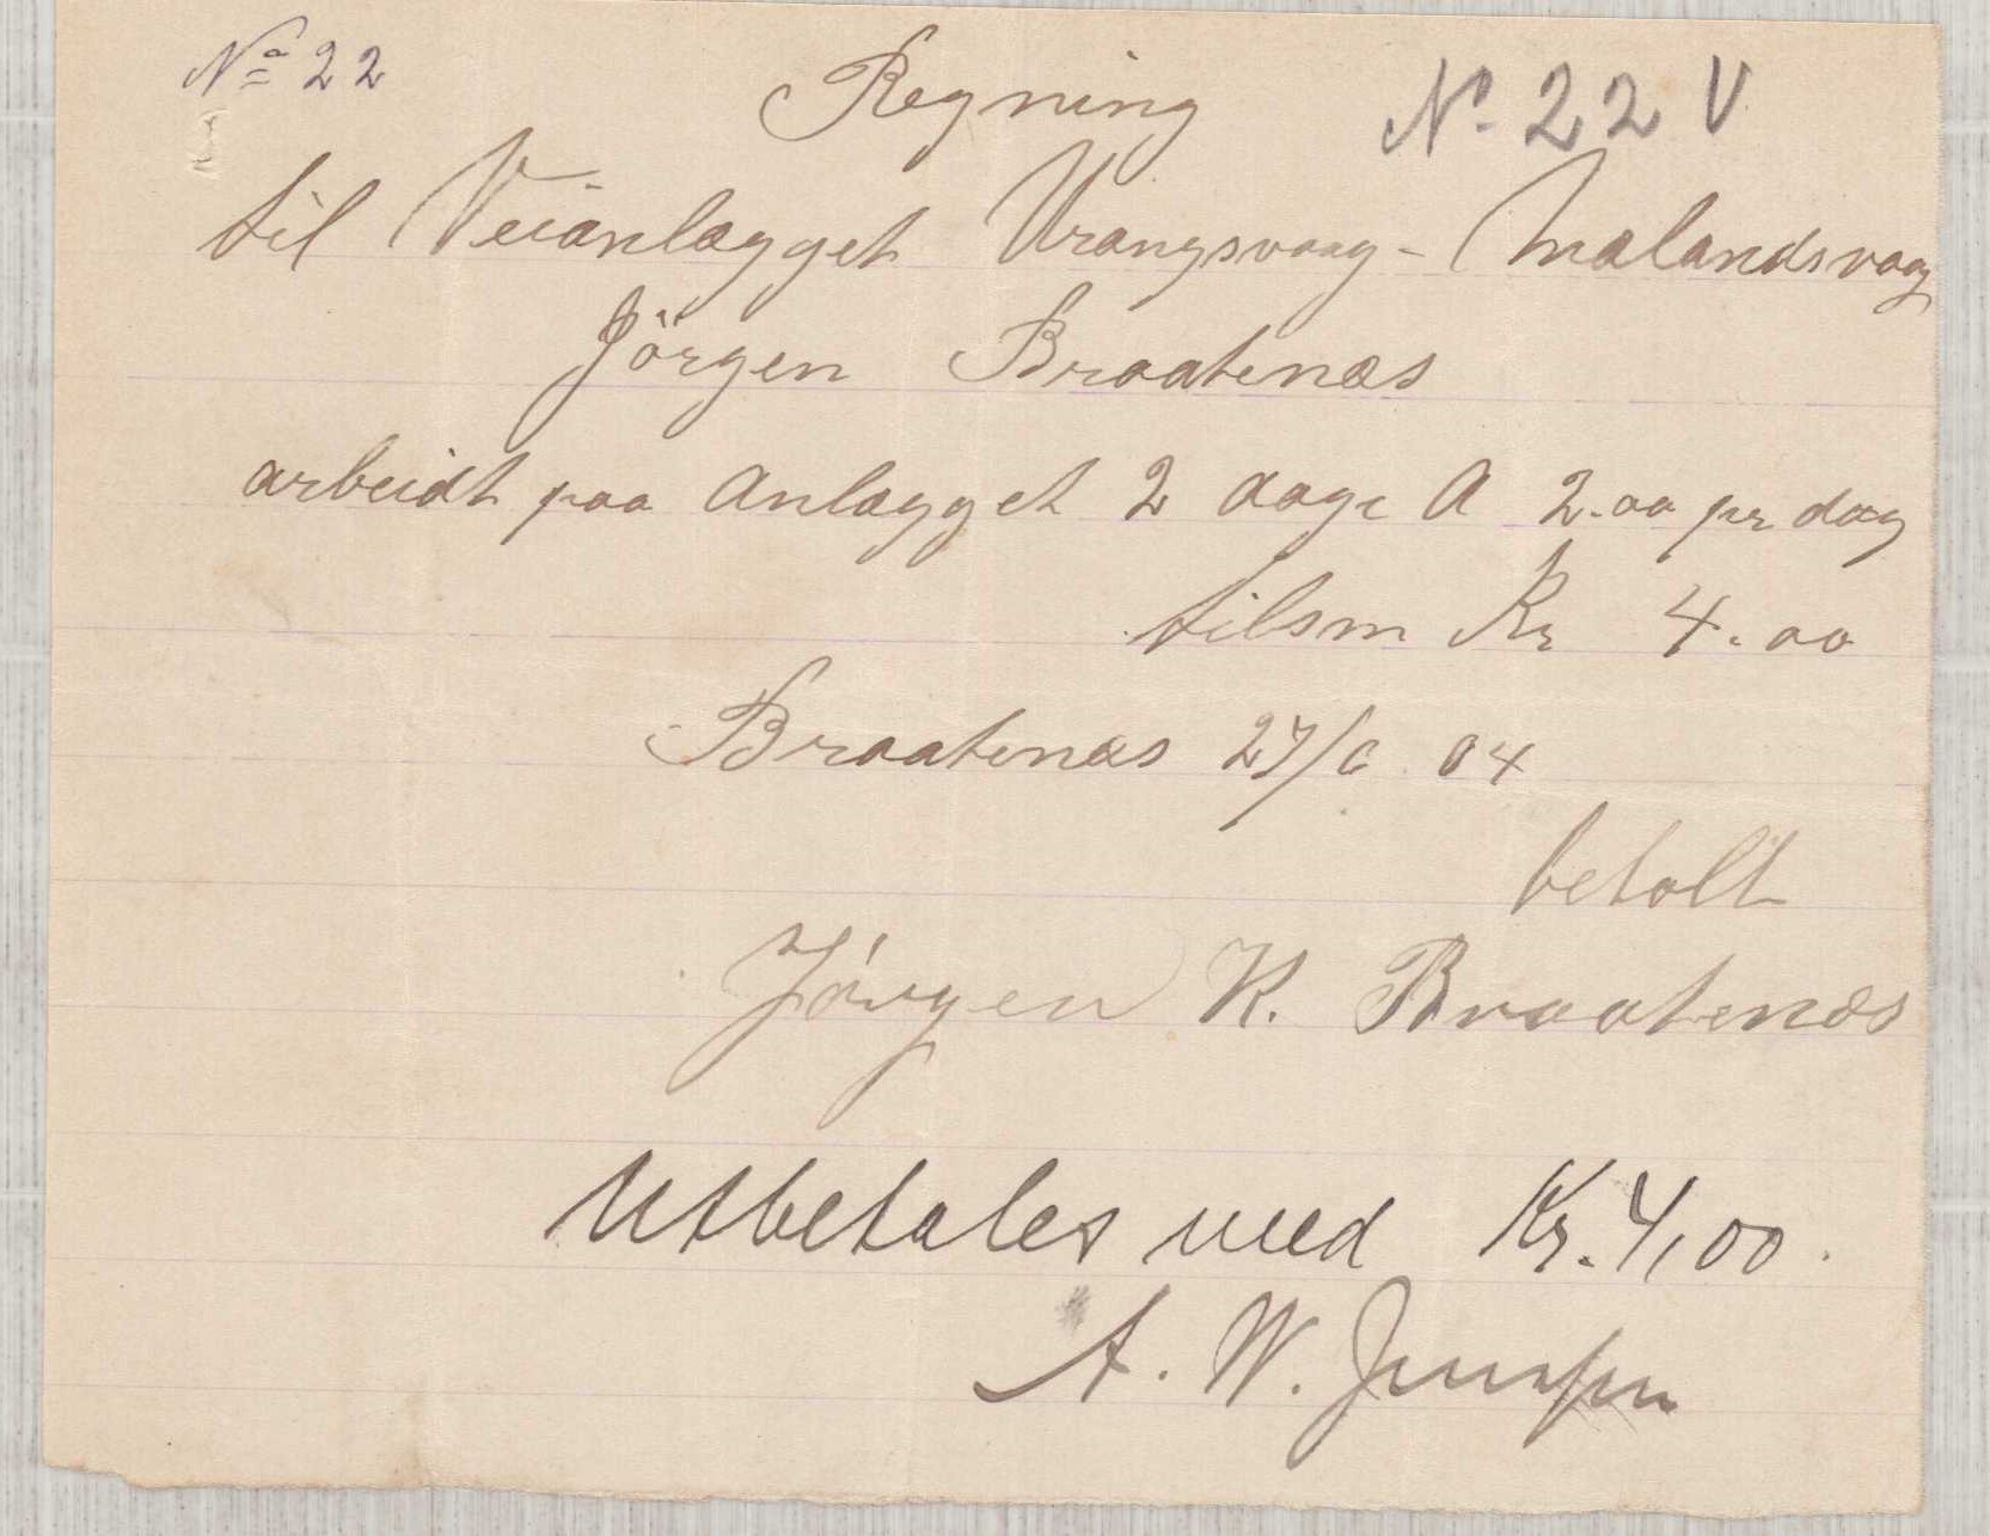 No 22
Regning
No. 22 V
til Veianlægget Vrangsvaag - Malandsvaag
Jörgen Braatenæs
arbeidt paa Anlægget 2 dage A 2.00 pr dag
tilsm Kr 4.00
Braatenæs 27/6 04
betalt
Jórgen K. Braatenæs
Utbetales med Kr. 4,00.
A. W. Jenssen